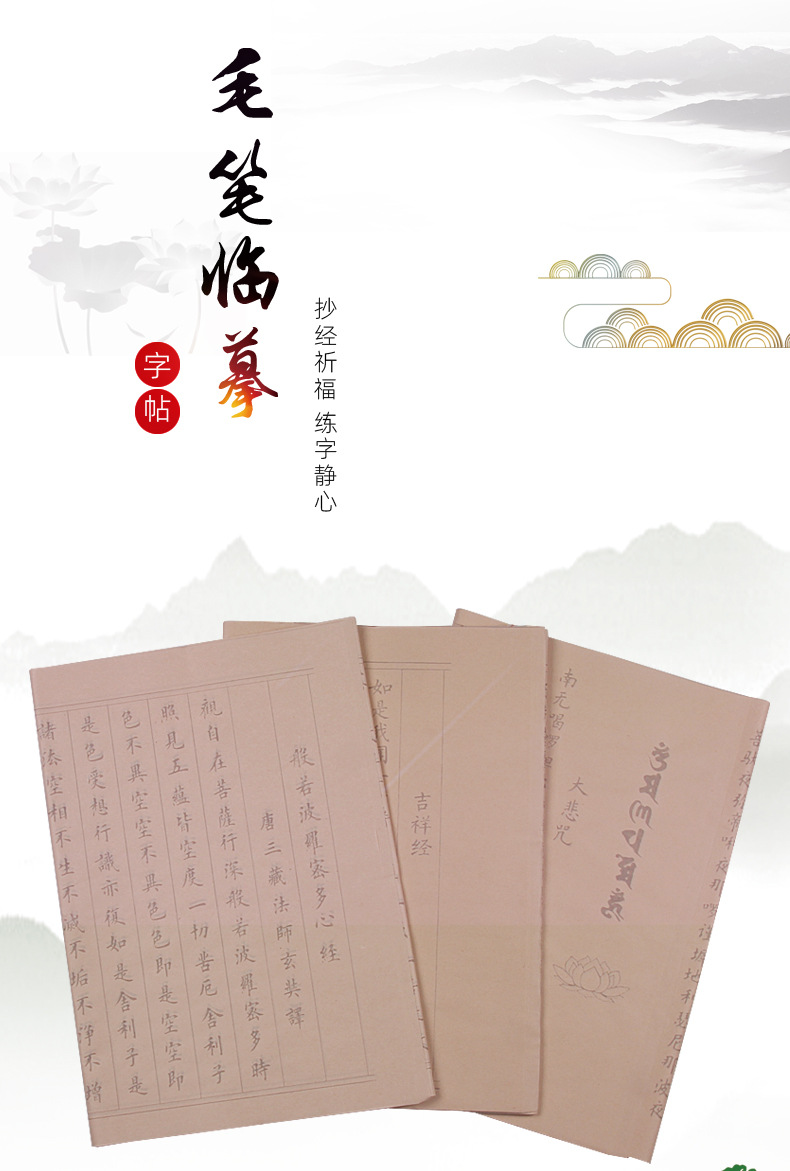 毛笔临摹
字帖
抄经祈福 练字静心
般若波羅密多心經
唐三藏法師玄奘譯
觀自在菩薩行深般若波羅密多時
照見五蘊皆空度一切苦厄舍利子
色不異空空不異色色即是空空即
是色受想行識亦復如是舍利子是
諸法空相不生不滅不垢不淨不增
吉祥经
如是我闻
大悲咒
南无喝啰